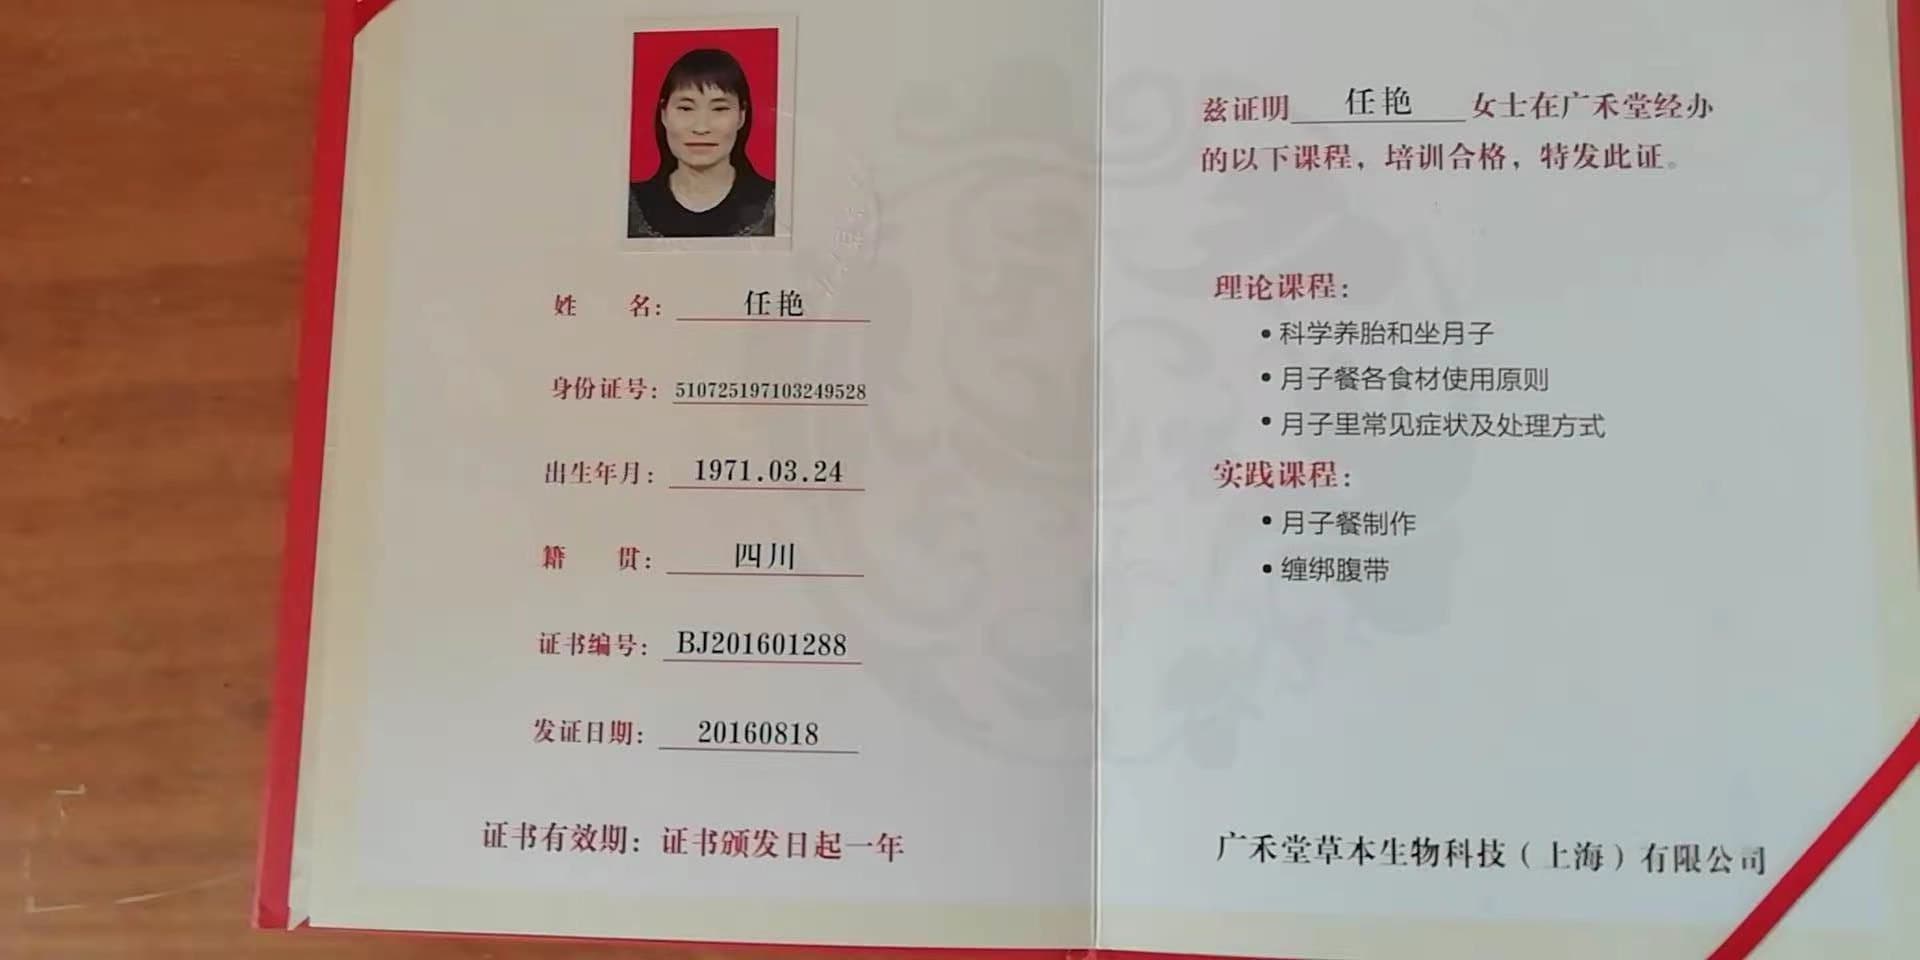 姓 名： 任艳
身份证号： 510725197103249528
出生年月： 1971.03.24
籍 贯： 四川
证书编号： BJ201601288
发证日期： 20160818
证书有效期：证书颁发日起一年
兹证明 任艳 女士在广禾堂经办
的以下课程，培训合格，特发此证。
理论课程：
• 科学养胎和坐月子
• 月子餐各食材使用原则
• 月子里常见症状及处理方式
实践课程：
• 月子餐制作
• 缠绑腹带
广禾堂草本生物科技（上海）有限公司